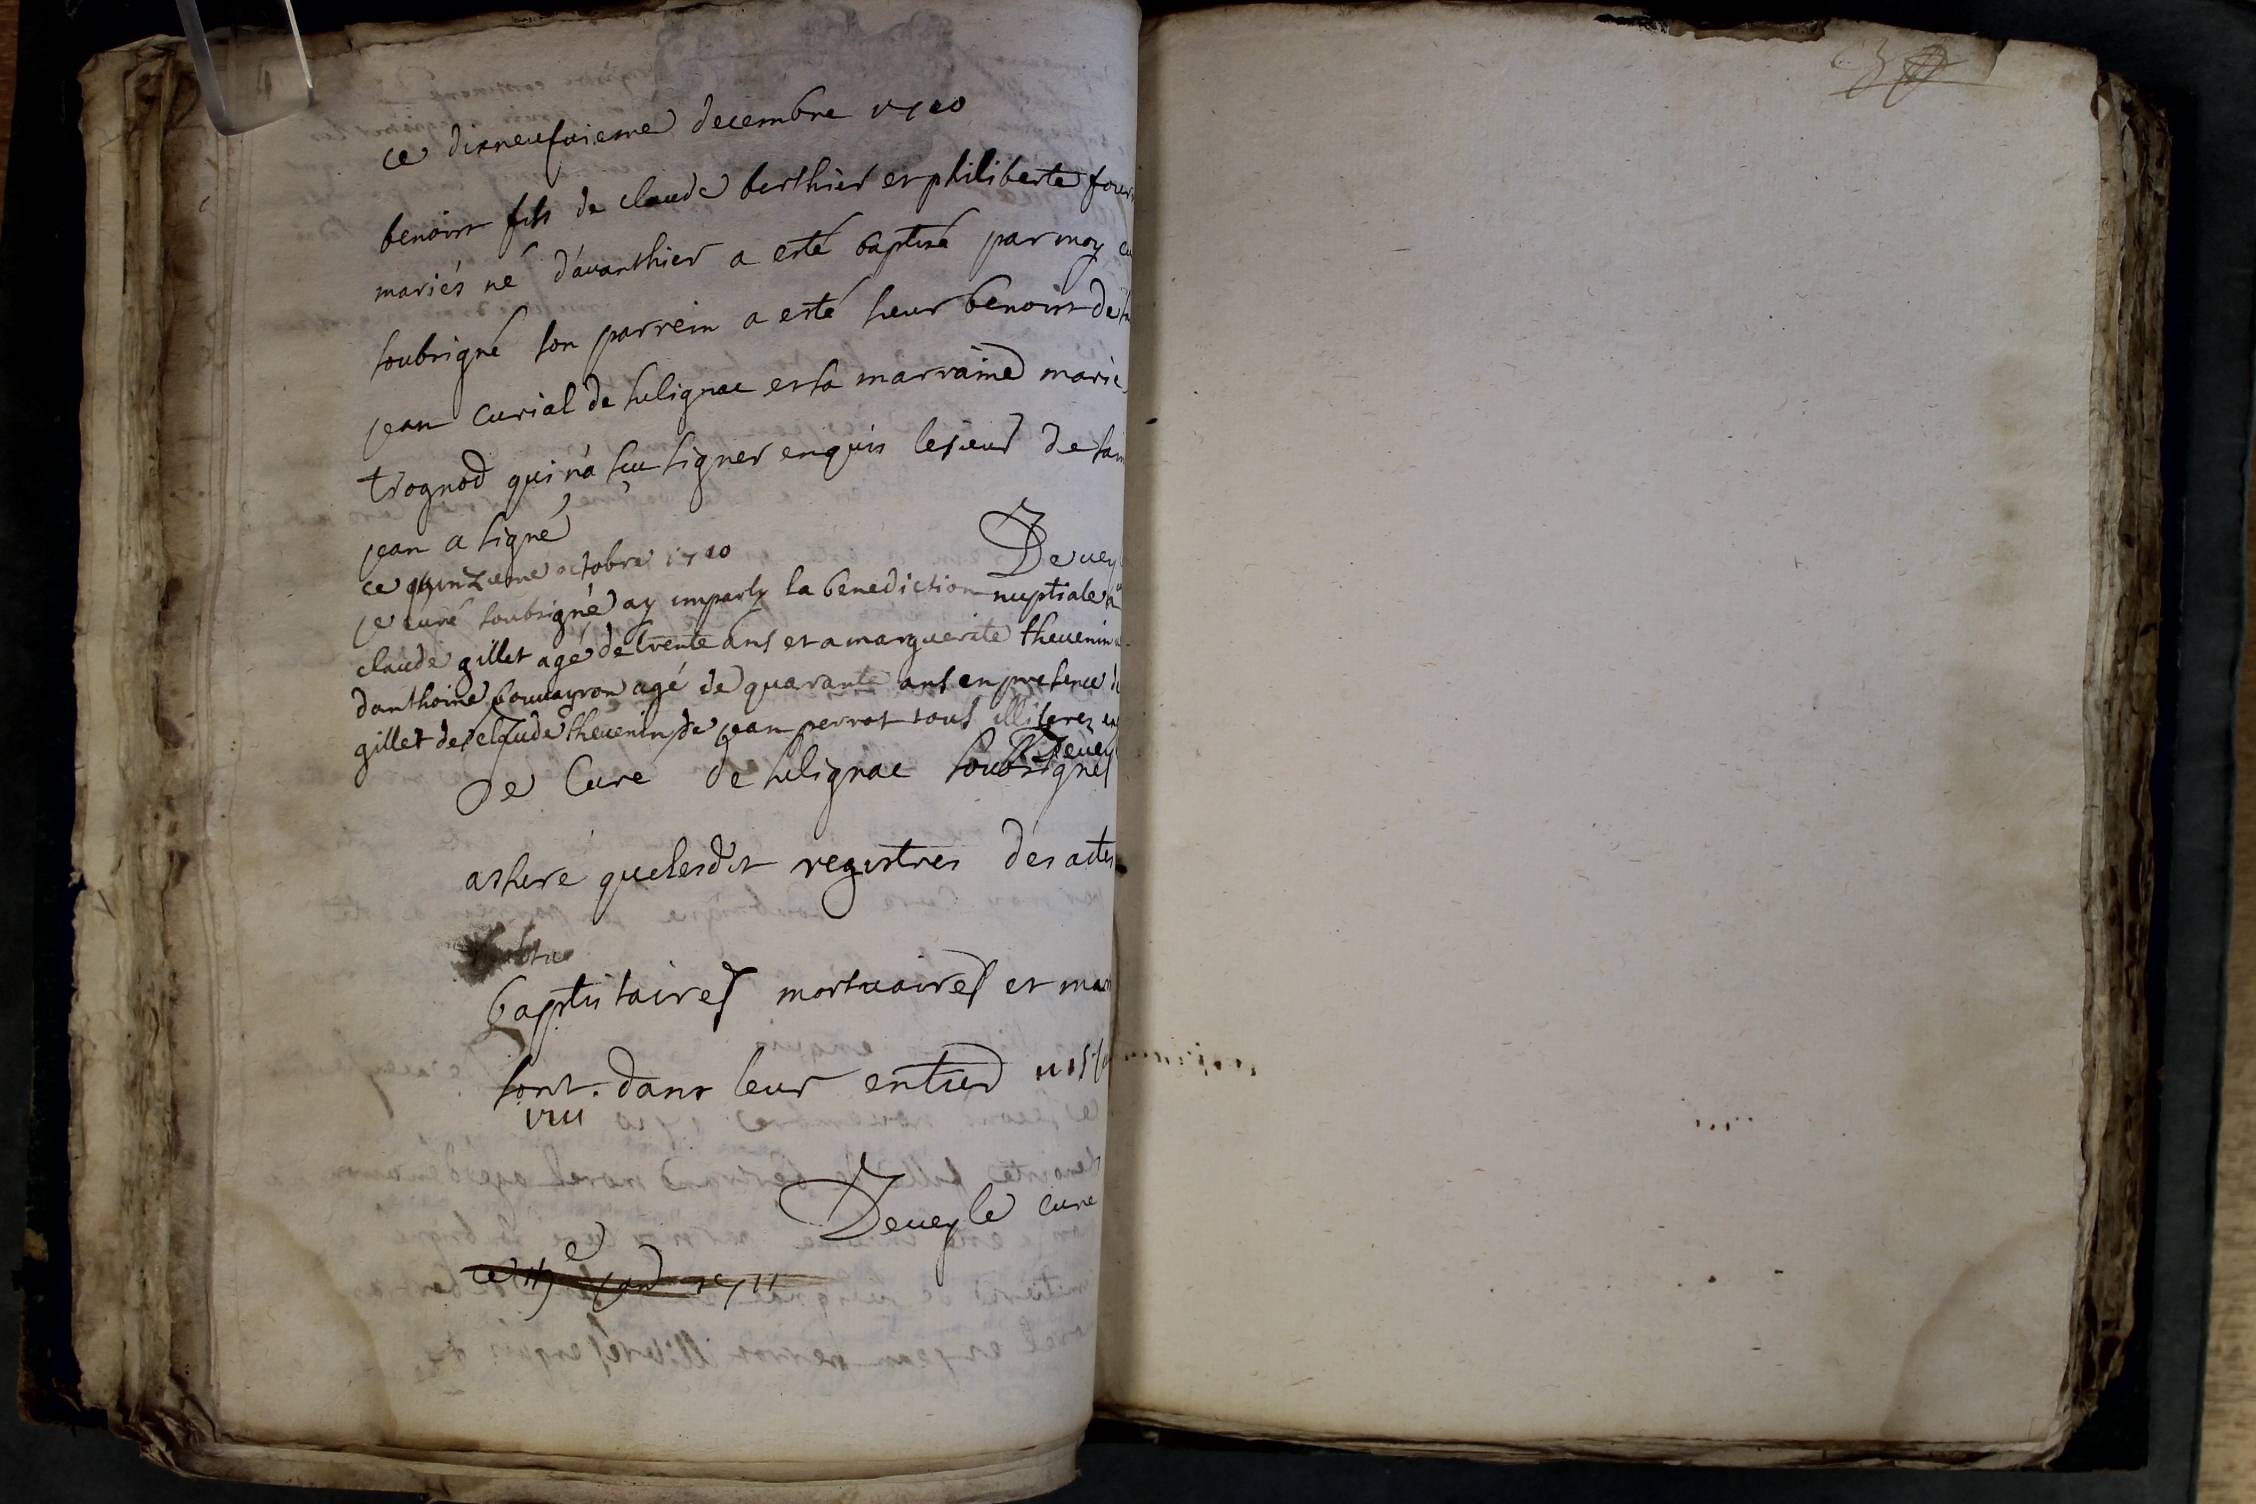 ce dixneufuieme decembre 1710
benoist fils de claude berthier et philiberte four
mariés né d'auanthier a esté baptisé par moy cu
soubsigné son parrein a esté sieur benoist de
jean curial de sulignac et sa marraine marie
trognod qui n'a scu signer enquis le sieur de sain
jean a signé
Deuey
ce quinzieme octobre 1710
je curé soubsigné ay imparty la benediction nuptiale a
claude gillet agé de trente ans et a marguerite theuenin
danthoine bouuayron agé de quarante ans en presence de
gillet de claude theuenin de jean perrot tous illiterez en
Deuey
Je Curé de sulignac soubsigné
ashure quelesdit registres des actes
baptistaires mortuaires et mar
sont dans leur entier
1711
Deueyle curé
ce
1711